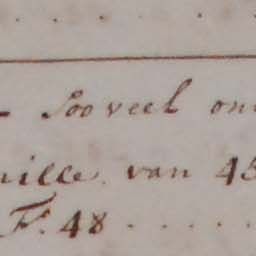 . . . . .
- Soo veel on
uille. van 45
F. 48 . . . . .